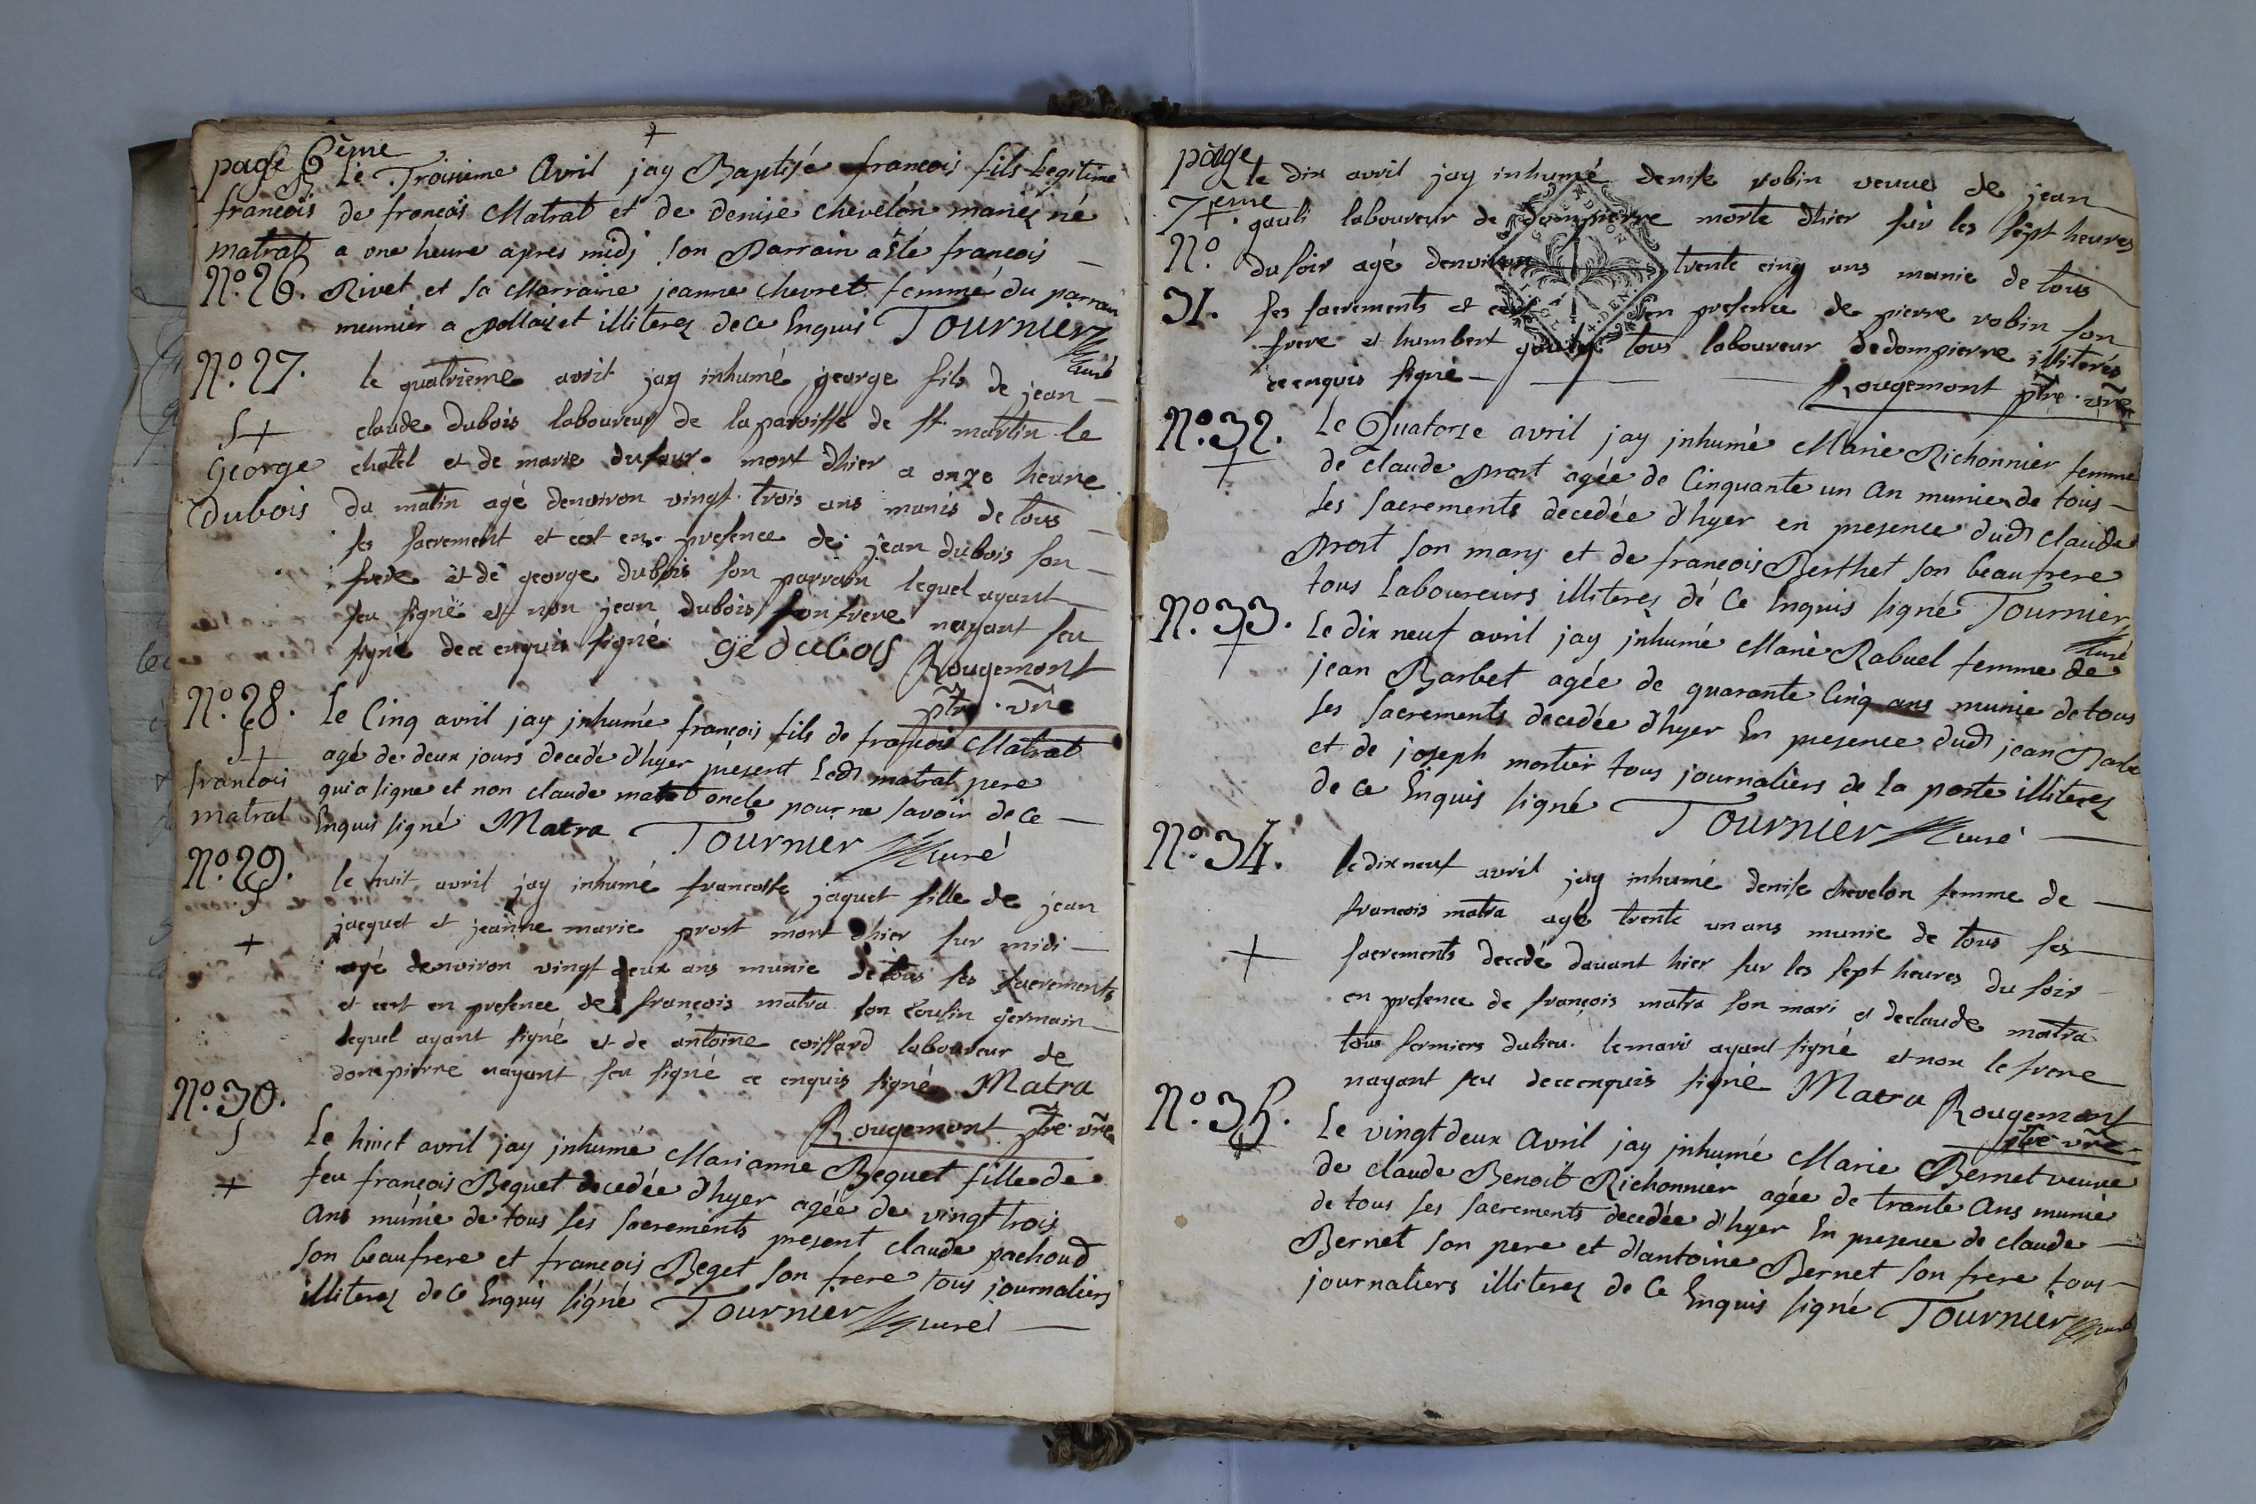 page 6ème
Le Troisieme Avril jay Baptisé francois fils Legitime
francois
matrat
N.º 26.
de francois Matrat et de denise chevelon mariez né
a one heure apres midj son Parrain a été francois
Rivet et sa Marraine jeanne chevret femme du parrain
meunier a pollaizet illiterez de ce Enquis Tournier curé
N.º 27.
George
Dubois
le quatrieme avril jay inhumé george fils de jean
claude dubois laboureur de la paroisse de st. martin le
chatel et de marie dufour mort dhier a onze heure
du matin agé denviron vingt trois ans munis de tous
ses sacrement et cest en presence de jean dubois son
frere et de george dubois son parrain lequel ayant
seu signé et non jean dubois son frere nayant seu
signé de ce enquis signé ge dubois
Rougemont
ptre vre
N.º 28.
francois
matrat
Le Cinq avril jay jnhumé françois fils de françois Matrat
agé de deux jours decede d'hyer présent Led matrat pere
qui a signe et non claude matrat oncle pour ne savoir de ce
Enquis signé Matra Tournier curé
N.º 29.
le huit avril jay inhumé francoise jaquet fille de jean
jacquet et jeanne marie prost mort dhier sur midi
agé denviron vingt deux ans munie de tous ses sacrements
et cest en presence de françois matra son cousin germain
lequel ayant signé et de antoine coissard laboureur de
dompierre nayant seu signé ce enquis signé Matra
Rougemont ptre vre
N.º 30.
Le huict avril jay jnhumé Marianne Bequet fille de
feu françois Bequet decedée d'hyer agée de vingt trois
Ans munie de tous ses sacrements present claude pachoud
son beaufrere et francois Beget son frere tous journaliers
illiterez de ce Enquis signé Tournier curé
page
7eme
N.º
31.
le dix avril jay inhumé denise robin veuve de jean
gauli laboureur de dompierre morte dhier sur les sept heures
du soir agé denviron trente cinq ans munie de tous
ses sacrements et cest en presence de pierre robin son
frere et humbert tous laboureur de dompierre illiterés
ce enquis signé
Rougemont ptre vre
N.º 32.
Le Quatorze avril jay jnhumé Marie Richonnier femme
de claude prost agée de Cinquante un an munie de tous
ses sacrements decedée d'hyer en presence dud claude
prost son mary et de francois Berthet son beaufrere
tous Laboureurs illiterez de Ce Enquis signé Tournier
curé
N.º 33.
Le dix neuf avril jay jnhumé Marie Rabuel femme de
jean Barbet agée de quarante Cinq ans munie de tous
ses sacrements decedée d'hyer En presence dud jean Barbe
et de joseph mortier tous journaliers de la poste illiterez
de ce Enquis signé Tournier curé
N.º 34.
le dix neuf avril jay inhumé denise chevelon femme de
francois matra agé trente un ans munie de tous ses
sacrements decedé davant hier sur les sept heures du soir
en presence de françois matra son mari et de claude matra
tous fermiers du lieu le mari ayant signé et non le frere
nayant seu de ce enquis signé Matra Rougemont
ptre vre
N.º 35.
Le vingt deux Avril jay jnhumé Marie Bernet veuve
de claude Benoit Richonnier agée de trante Ans munie
de tous ses sacrements decedée d'hyer En presence de claude
Bernet son pere et d'antoine Bernet son frere tous
journaliers illiterez de Ce Enquis signé Tournier curé